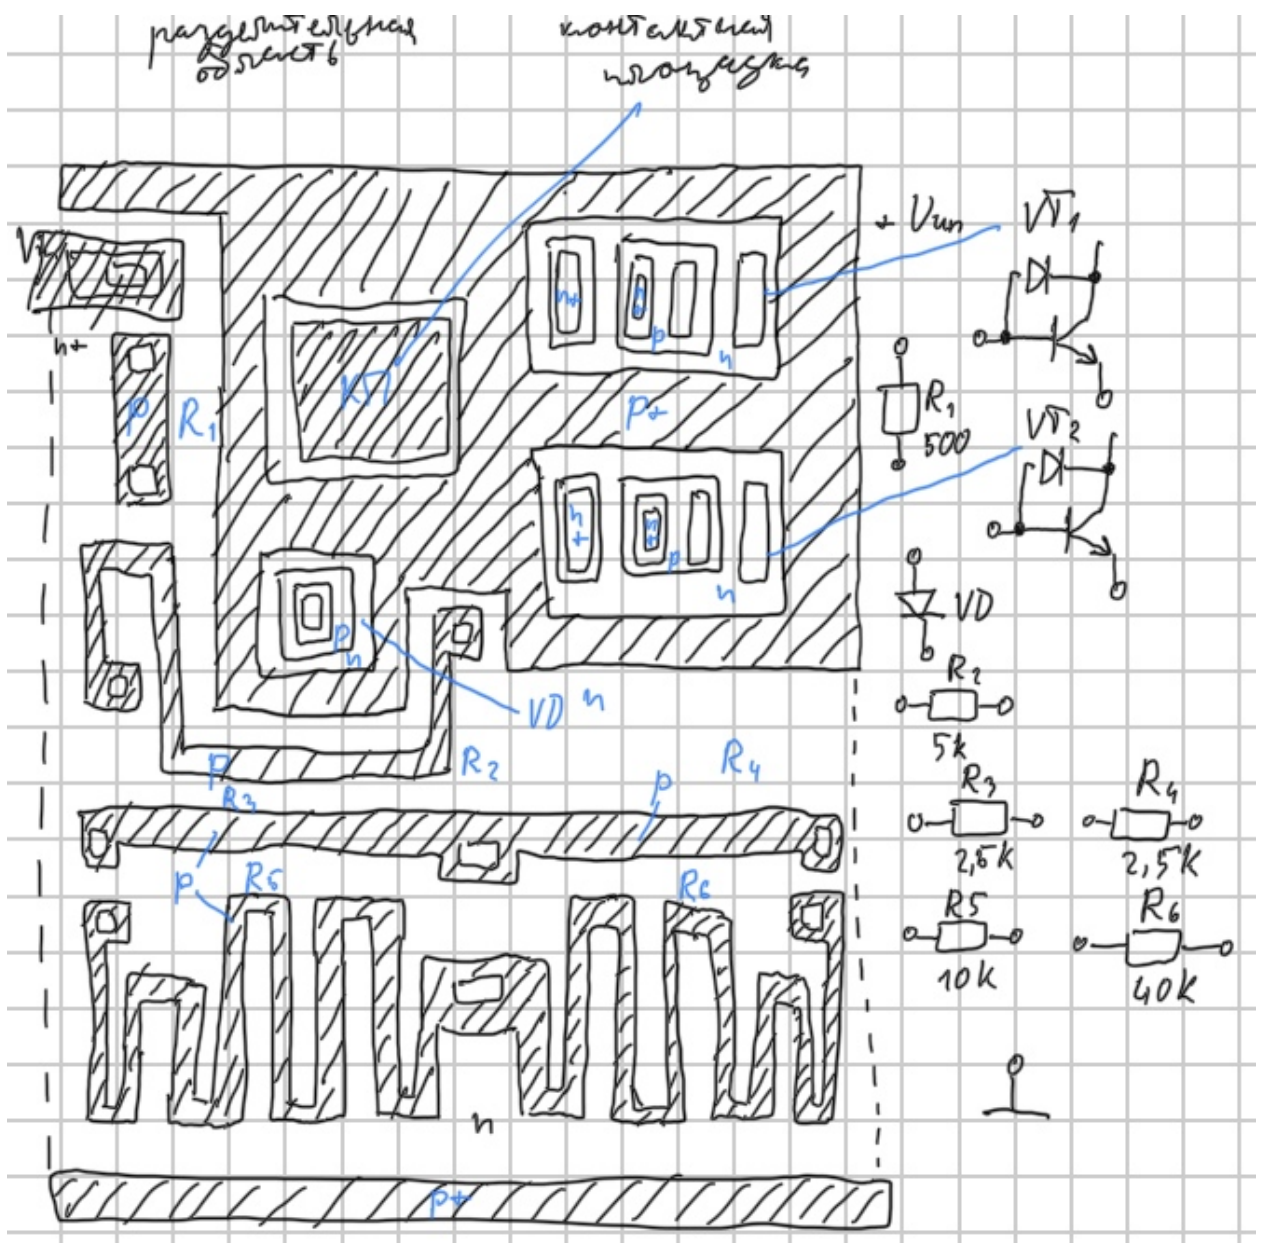 разделительная
область
контактная
площадка
+ Uип
VT1
n+
КП
n+
n+
p
n
p+
p
R1
R1
500
VT2
n+
n+
p
n
p
n
VD
n
VD
R2
5k
p
R2
R3
p
R4
R3
2,5k
R4
2,5k
p
R5
R6
R5
10k
R6
40k
n
p+